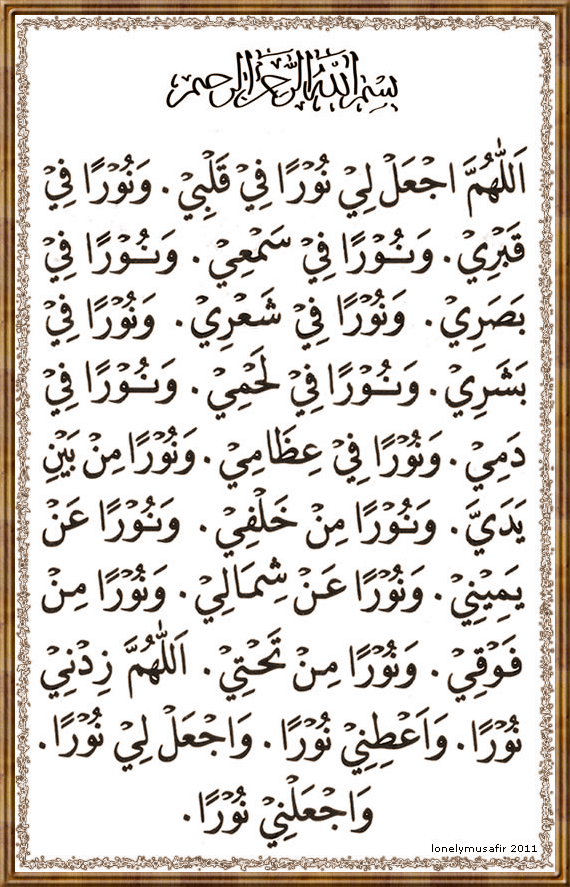 بِسْمِ اللهِ الرَّحْمٰنِ الرَّحِيمِ
اَللّٰهُمَّ اجْعَلْ لِيْ نُوْرًا فِيْ قَلْبِيْ. وَنُوْرًا فِيْ
قَبْرِيْ. وَنُوْرًا فِيْ سَمْعِيْ. وَنُوْرًا فِيْ
بَصَرِيْ. وَنُوْرًا فِيْ شَعْرِيْ. وَنُوْرًا فِيْ
بَشَرِيْ. وَنُوْرًا فِيْ لَحْمِيْ. وَنُوْرًا فِيْ
دَمِيْ. وَنُوْرًا فِيْ عِظَامِيْ. وَنُوْرًا مِنْ بَيْنِ
يَدَيَّ. وَنُوْرًا مِنْ خَلْفِيْ. وَنُوْرًا عَنْ
يَمِيْنِيْ. وَنُوْرًا عَنْ شِمَالِيْ. وَنُوْرًا مِنْ
فَوْقِيْ. وَنُوْرًا مِنْ تَحْتِيْ. اَللّٰهُمَّ زِدْنِيْ
نُوْرًا. وَاَعْطِنِيْ نُوْرًا. وَاجْعَلْ لِيْ نُوْرًا.
وَاجْعَلْنِيْ نُوْرًا.
lonelymusafir 2011